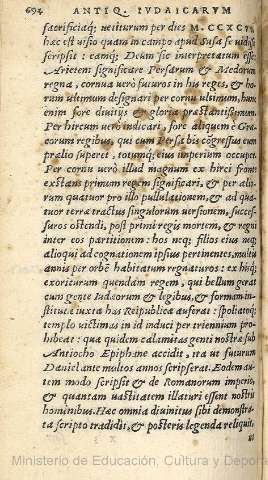 694 ANTIQ. IVDAICARVM
sacrificiaq; vetiturum per dies M. CCXCVI.
hæc est visio quam in campo apud Susa se vidisse
scripsit: eamq; Deum sic interpretatum esse
Arietem significare Persarum & Medorum
regna, cornua verò futuros reges, &
rum vltimum designari per cornu vltimum,
enim fore diuitijs & gloria præstantissimum.
Per hircum verò indicari, fore aliquem è Græ-
corum regibus, qui cum Persa bis cogressus eum
prælio superet, totumq; eius imperium occupet
Per cornu verò illud magnum ex hirci fronte
exstans primum regem significari, & per alio-
rum quatuor pro illo pullulationem, & ad qua-
tuor terræ tractus singulorum versionem, succes-
suros ostendi, post primi regis mortem, & regni
inter eos partitionem: hos neq; filios eius neq;
alioqui ad cognationem ipsius pertinentes, multis
annis per orbē habitatum regnaturos: ex hisq;
exoriturum quendam regem, qui bellum gerat
cum gente Iudæorum & legibus, & formam in-
stitutæ iuxta has Reipublicæ auferat: spoliatoq;
templo victimas in id induci per triennium pro-
hibeat: qua quidem calamitas genti nostræ sub
Antiocho Epiphane accidit, ita vt futurum
Daniel ante multos annos scripserat. Eodem au-
tem modo scripsit & de Romanorum imperio,
& quantam vastitatem illaturi essent nostris
hominibus. Hæc omnia diuinitus sibi demonstra-
ta scripto tradidit, & posteris legenda reliquit,
Ministerio de Educación, Cultura y Deporte